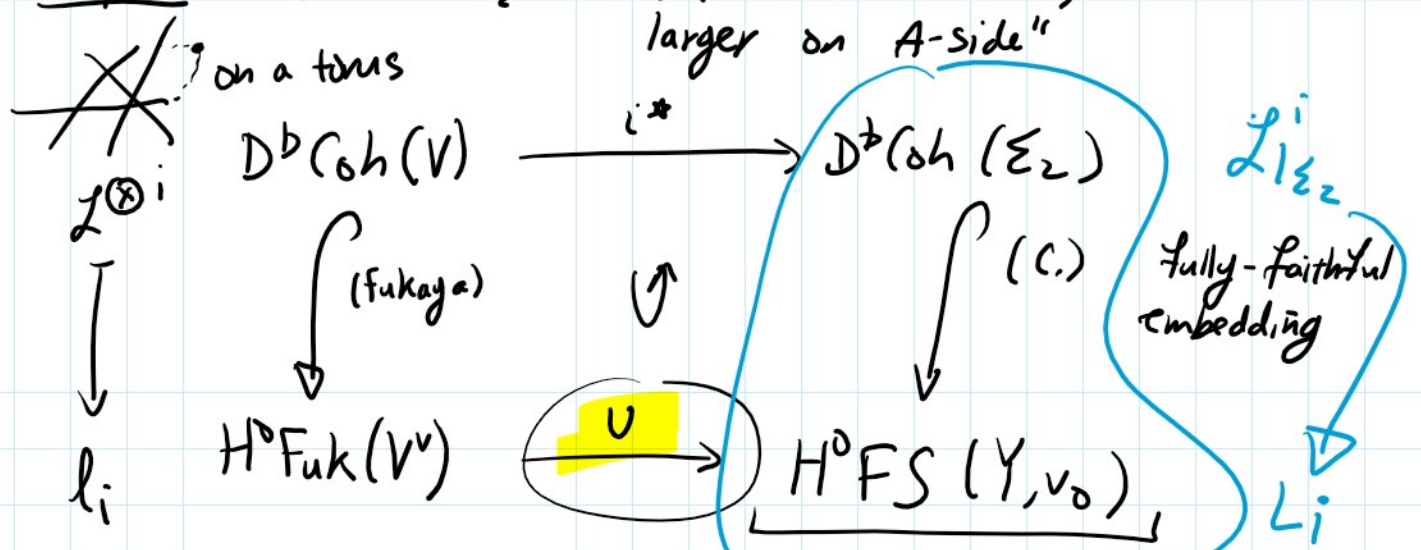 larger on A-side"
on a torus
i*
DᵇCoh(V)
DᵇCoh(Σ₂)
ℒⁱ|Σ₂
ℒ⊗i
(Fukaya)
↺
(C.)
fully-faithful
embedding
U
H⁰Fuk(Vᵛ)
H⁰FS(Y,v₀)
lᵢ
Lᵢ